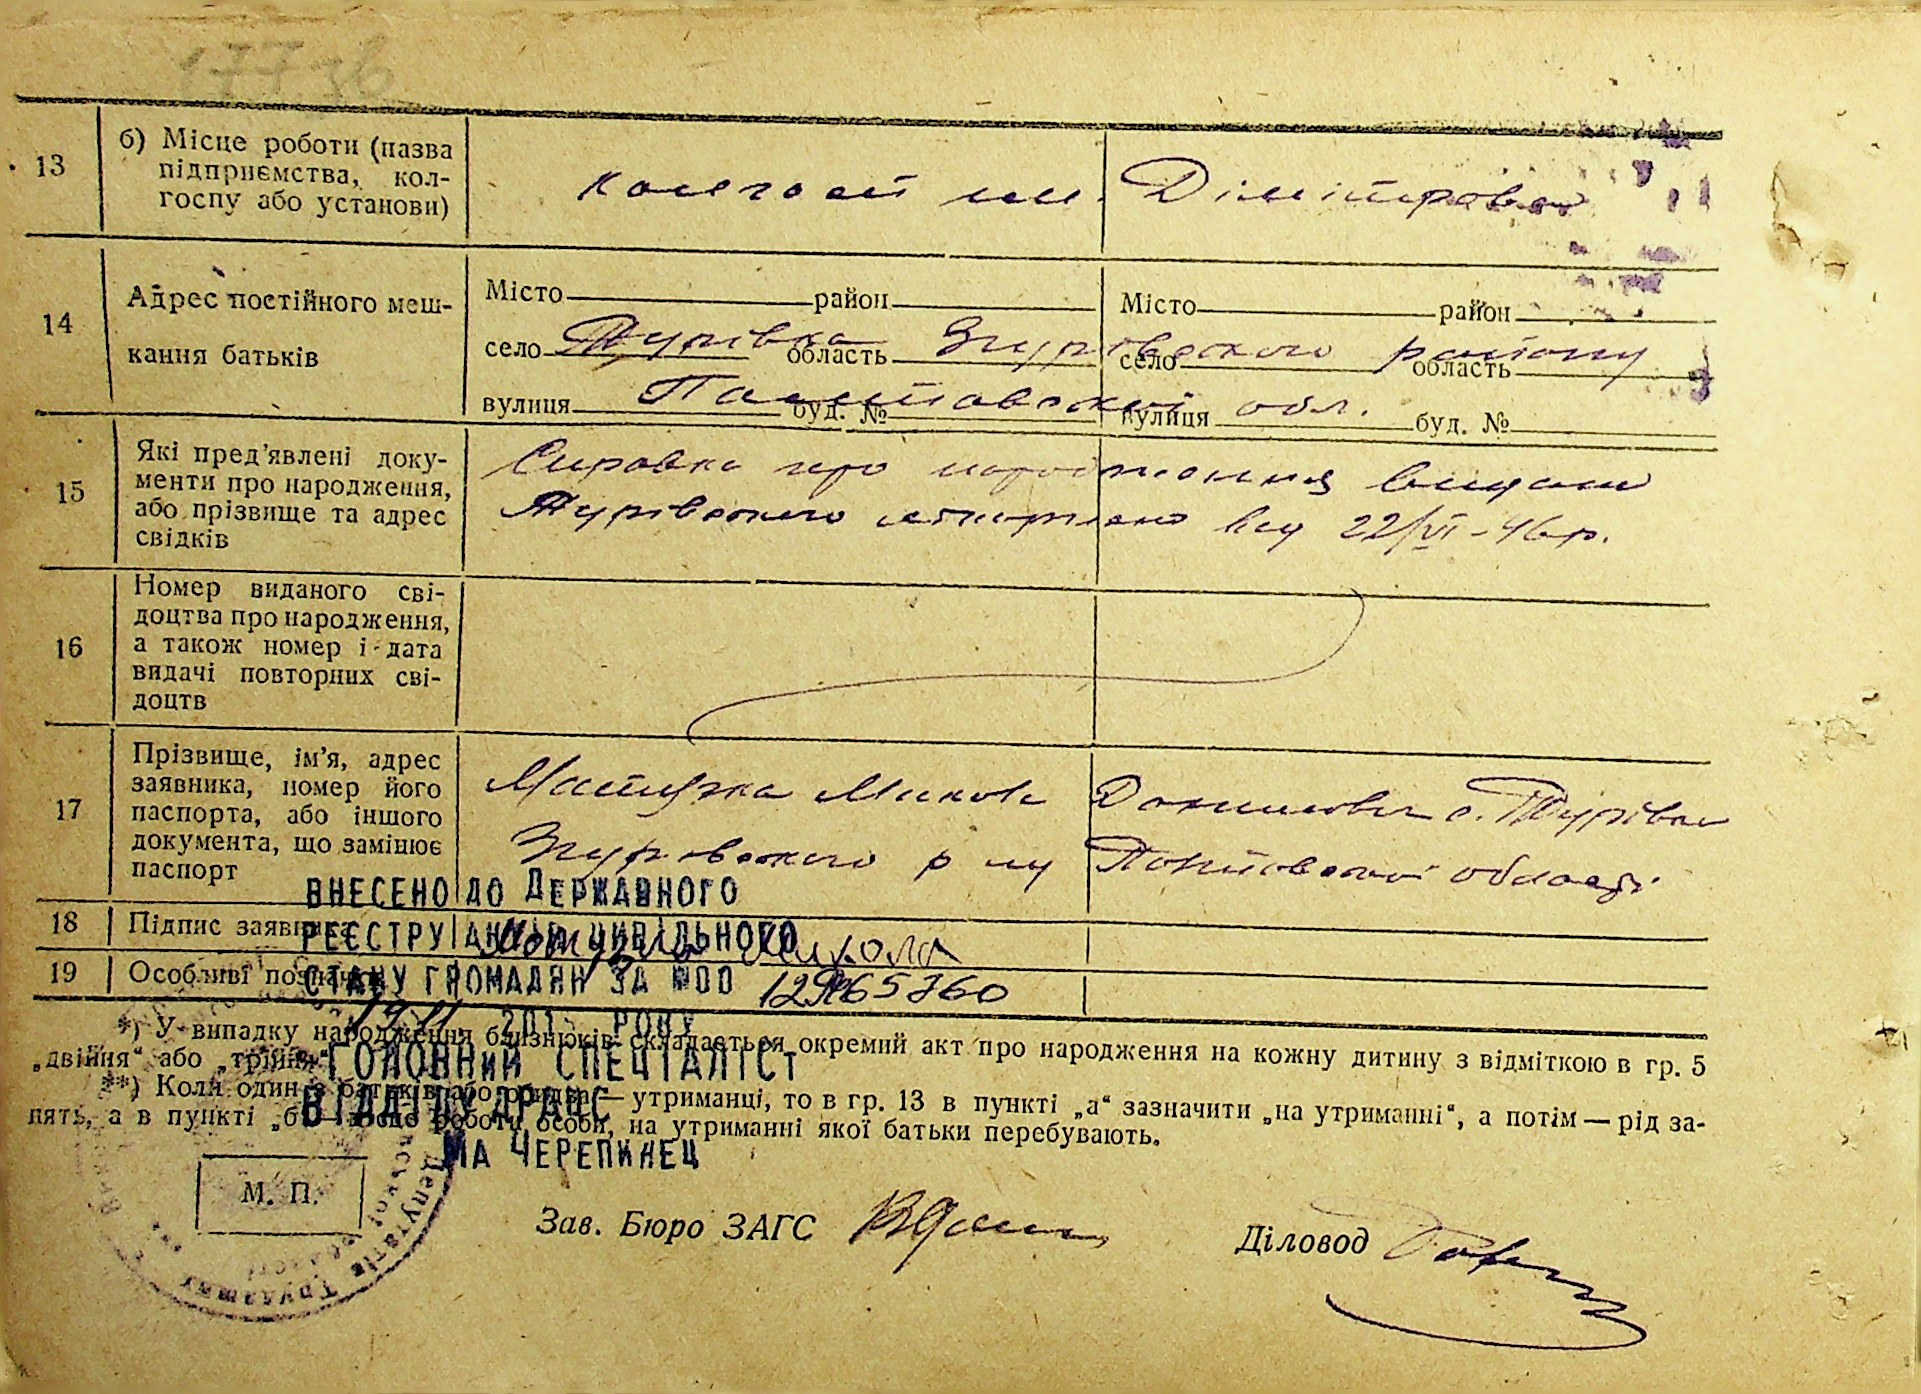 13
б) Місце роботи (назва
підприємства, кол-
госпу або установи)
колгосп ім. Дімітрова
14
Адрес постійного меш-
кання батьків
Місто район Місто район
село Турівка область Згурівського району село область
вулиця Полтавської обл. буд. № вулиця буд. №
15
Які пред'явлені доку-
менти про народження,
або прізвище та адрес
свідків
Справка про народження видана
Турівського 22/VI-46 р.
16
Номер виданого сві-
доцтва про народження,
а також номер і дата
видачі повторних сві-
доцтв
17
Прізвище, ім'я, адрес
заявника, номер його
паспорта, або іншого
документа, що замінює
паспорт
Микола с. Турівка
Згурівського р-ну Полтавської області
18 Підпис заявника Микола
19 Особливі
ВНЕСЕНО ДО ДЕРЖАВНОГО
РЕЄСТРУ АКТІВ ЦИВІЛЬНОГО
СТАНУ ГРОМАДЯН ЗА №00
РОКУ
ГОЛОВНИЙ СПЕЦІАЛІСТ
ВІДДІЛУ ДРАЦС
ЧЕРЕПИНЕЦ
*) У випадку народження близнюків складається окремий акт про народження на кожну дитину з відміткою в гр. 5
„двійня“ або „трійня“.
**) Коли один з батьків або — утриманці, то в гр. 13 в пункті „а“ зазначити „на утриманні“, а потім — рід за-
нять, а в пункті „б“ — роботи особи, на утриманні якої батьки перебувають.
М. П.
депутатів трудящих
Зав. Бюро ЗАГС
Діловод